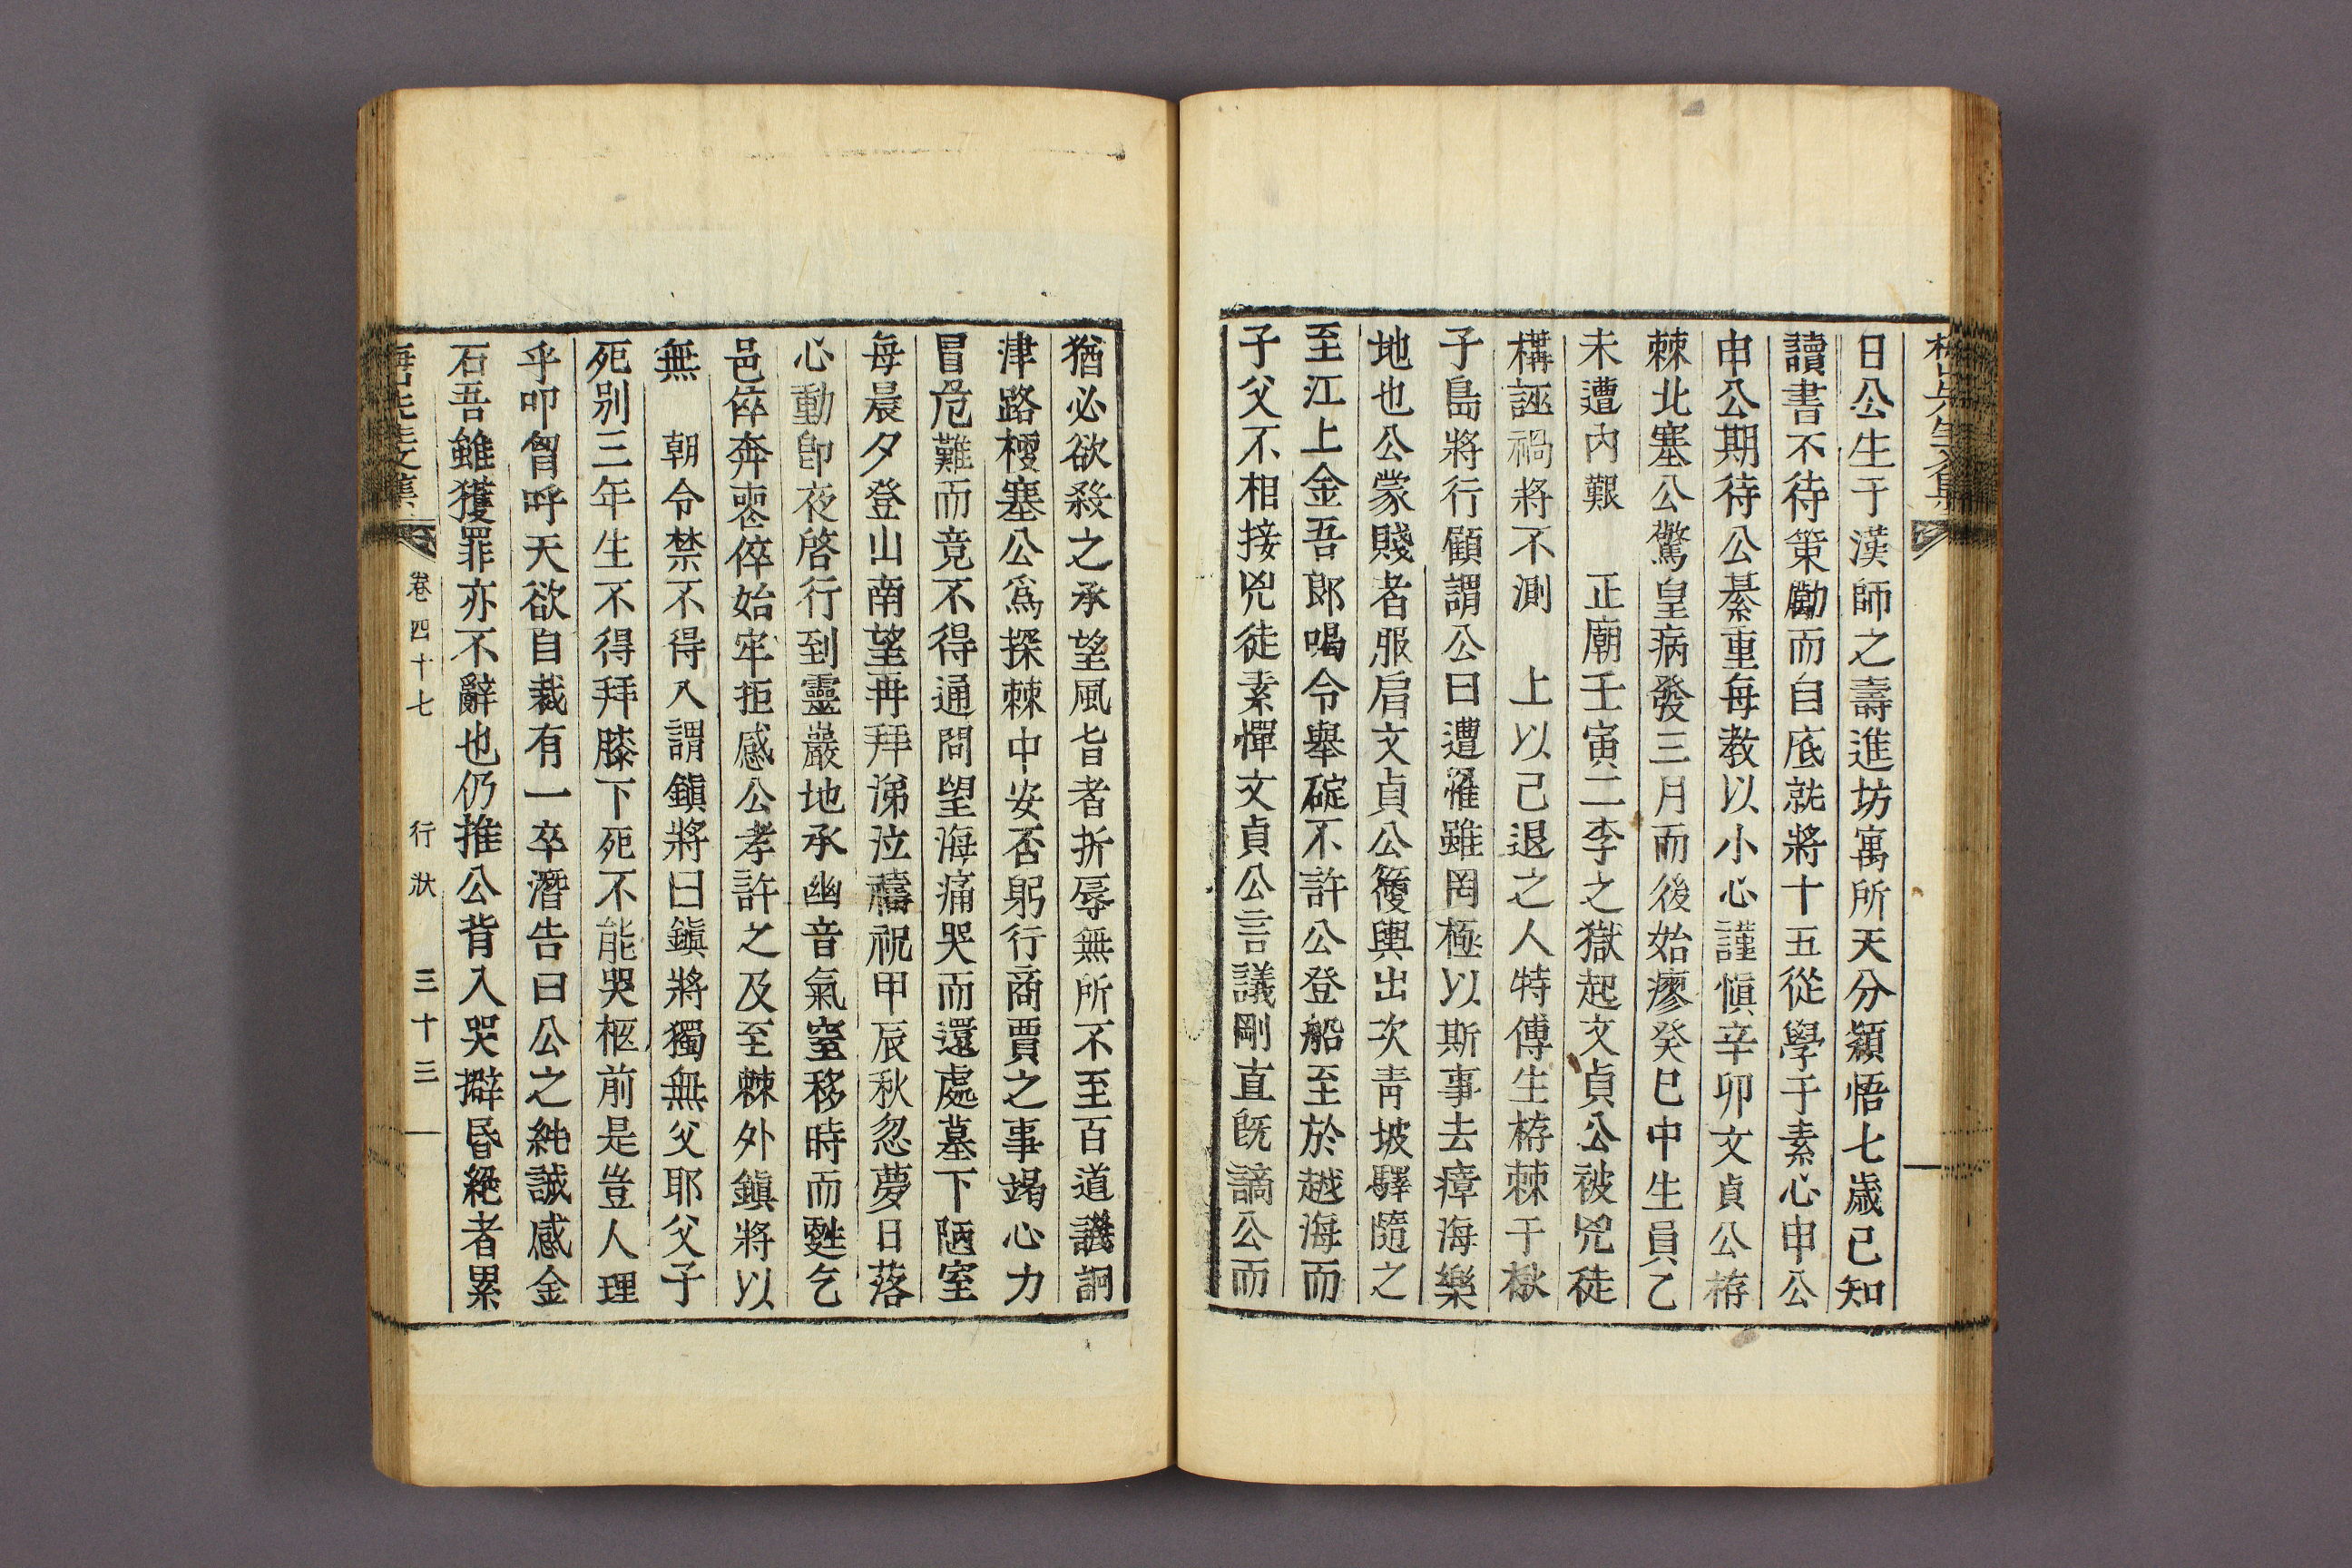 日公生于漢師之壽進坊寓所天分穎悟七歲已知
讀書不待策勵而自底就將十五從學于素心申公
申公期待公綦重每教以小心謹愼辛卯文貞公栫
棘北塞公驚皇病發三月而後始瘳癸巳中生員乙
未遭內艱 正廟壬寅二李之獄起文貞公被兇徒
構誣禍將不測 上以己退之人特傅生栫棘于楸
子島將行顧謂公曰遭罹雖罔極以斯事去瘴海樂
地也公蒙賤者服肩文貞公箯輿出次靑坡驛隨之
至江上金吾郎喝令舉碇不許公登船至於越海而
子父不相接兇徒素憚文貞公言議剛直旣謫公而
猶必欲殺之承望風旨者折辱無所不至百道譏詗
津路梗塞公爲探棘中安否躬行商賈之事竭心力
冒危難而竟不得通問望海痛哭而還處墓下陋室
每晨夕登山南望再拜涕泣禱祝甲辰秋忽夢日落
心動卽夜啓行到靈巖地承幽音氣窒移時而甦乞
邑倅奔喪倅始牢拒感公孝許之及至棘外鎭將以
無 朝令禁不得入謂鎭將曰鎭將獨無父耶父子
死別三年生不得拜膝下死不能哭柩前是豈人理
乎叩胷呼天欲自裁有一卒潛告曰公之純誠感金
石吾雖獲罪亦不辭也仍推公背入哭擗昏絕者累
卷四十七 行狀 三十三